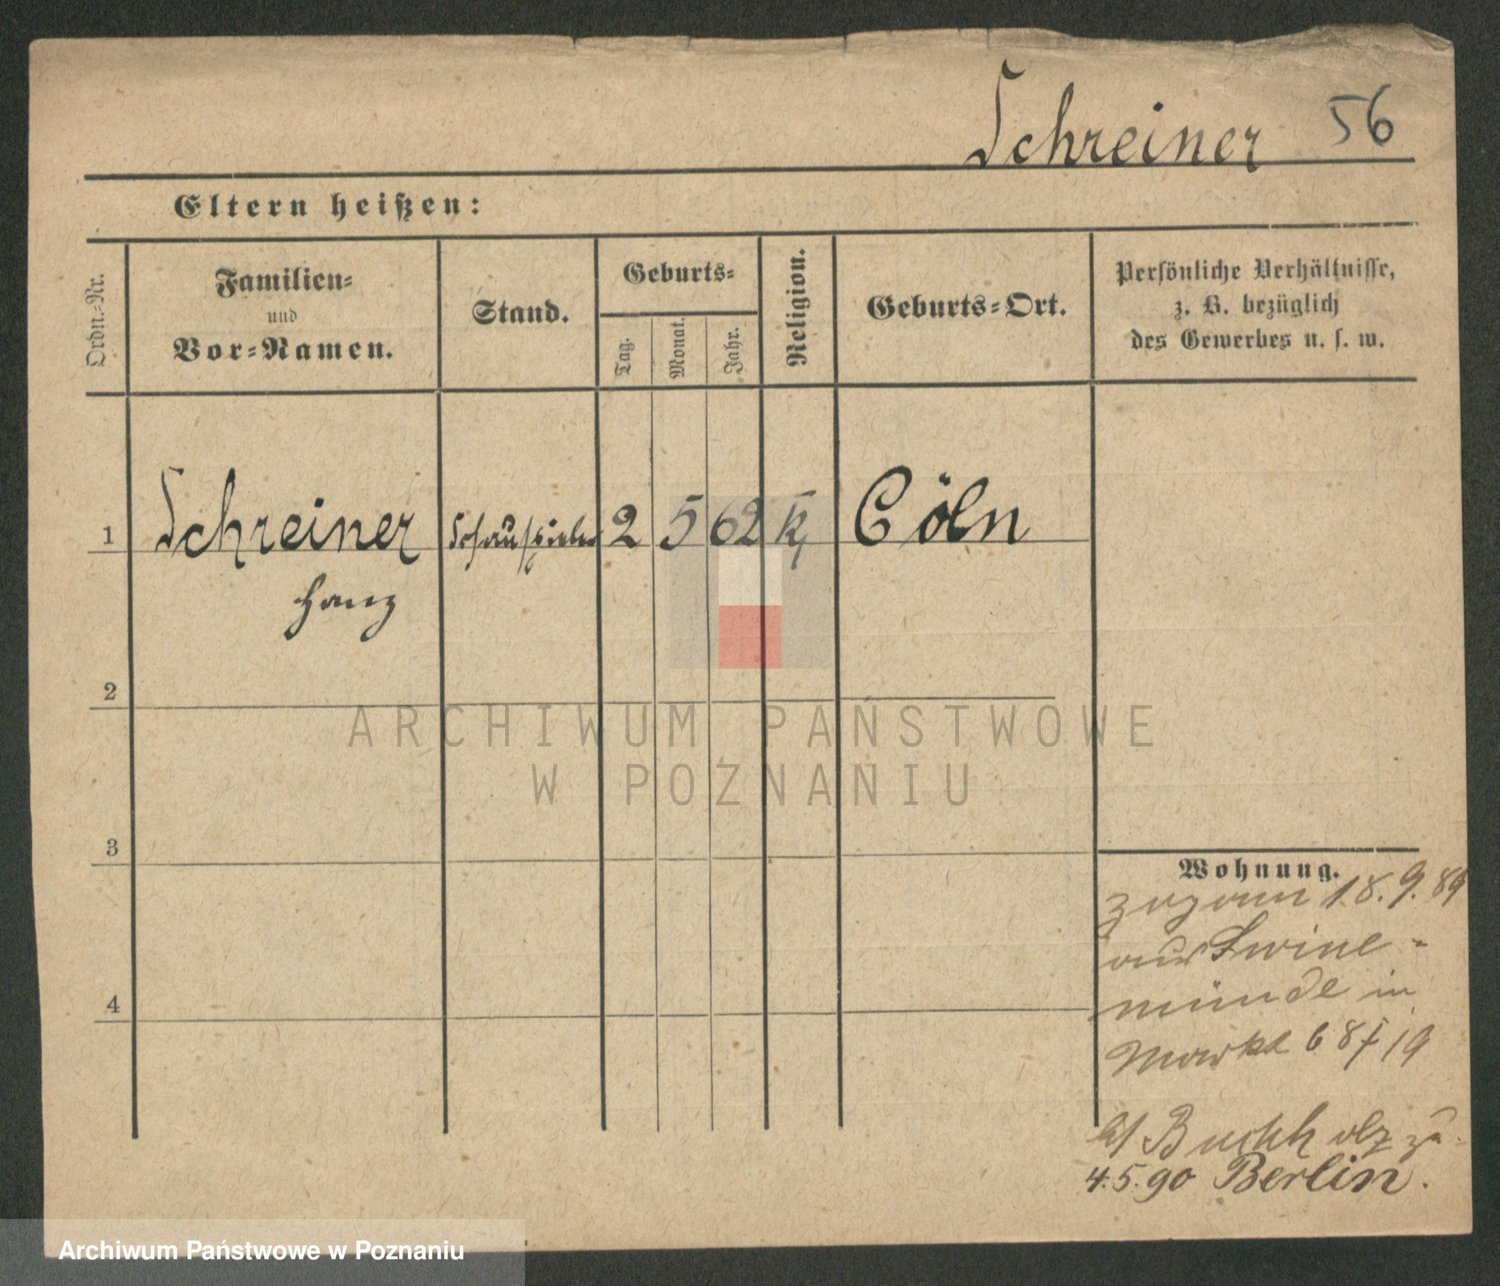 Schreiner 56
Eltern heißen:
Ordn.-Nr.
Familien-
und
Vor-Namen.
Stand.
Geburts-
Tag.
Monat.
Jahr.
Religion.
Geburts-Ort.
Persönliche Verhältnisse,
z. B. bezüglich
des Gewerbes u. s. w.
1 Schreiner Schauspieler 2 5 62 k, Cöln
Hanz
2
ARCHIWUM PAŃSTWOWE
W POZNANIU
3
Wohnung.
zugzann 18.9.89
aus Swine-
münde in
Markt 68
4
Buchholz zu
4.5.90 Berlin.
Archiwum Państwowe w Poznaniu